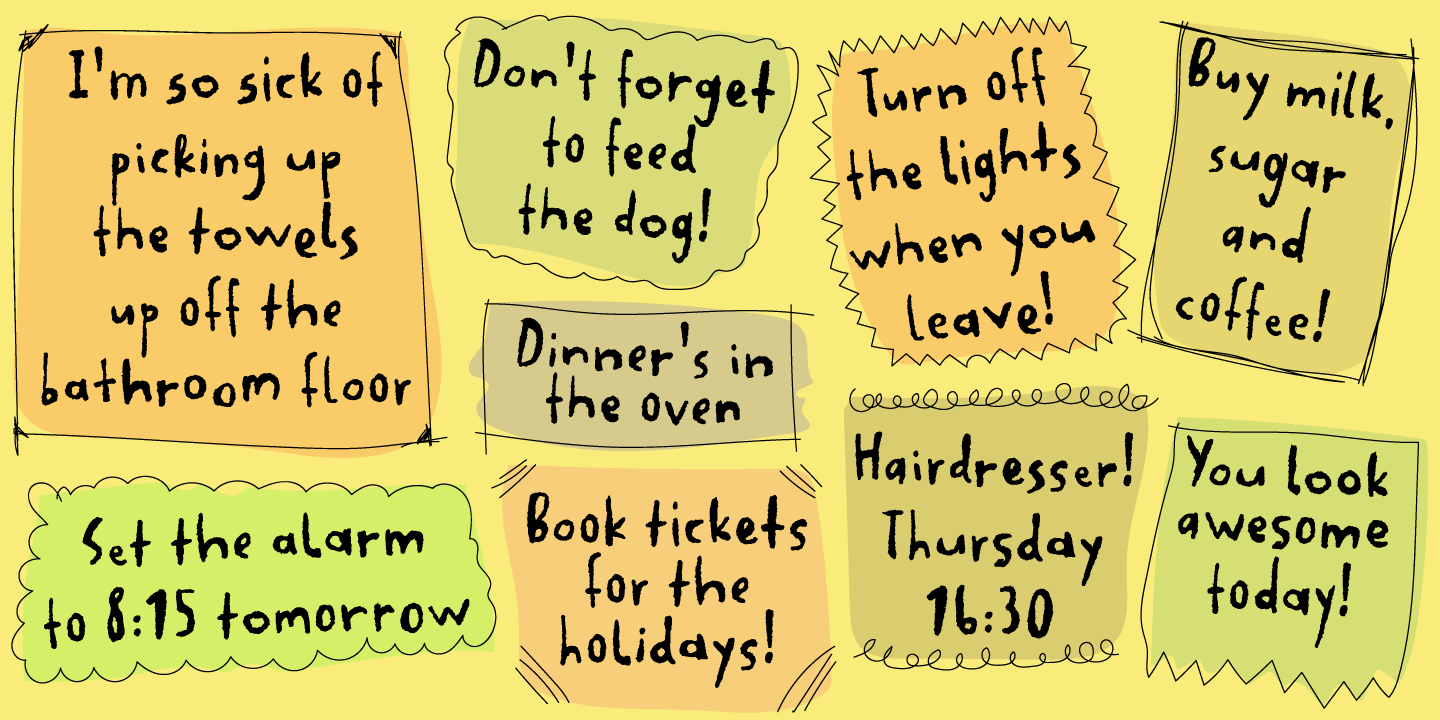 I'm so sick of
picking up
the towels
up off the
bathroom floor
Don't forget
to feed
the dog!
Turn off
the lights
when you
leave!
Buy milk,
sugar
and
coffee!
Dinner's in
the oven
Set the alarm
to 8:15 tomorrow
Book tickets
for the
holidays!
Hairdresser!
Thursday
16:30
You look
awesome
today!